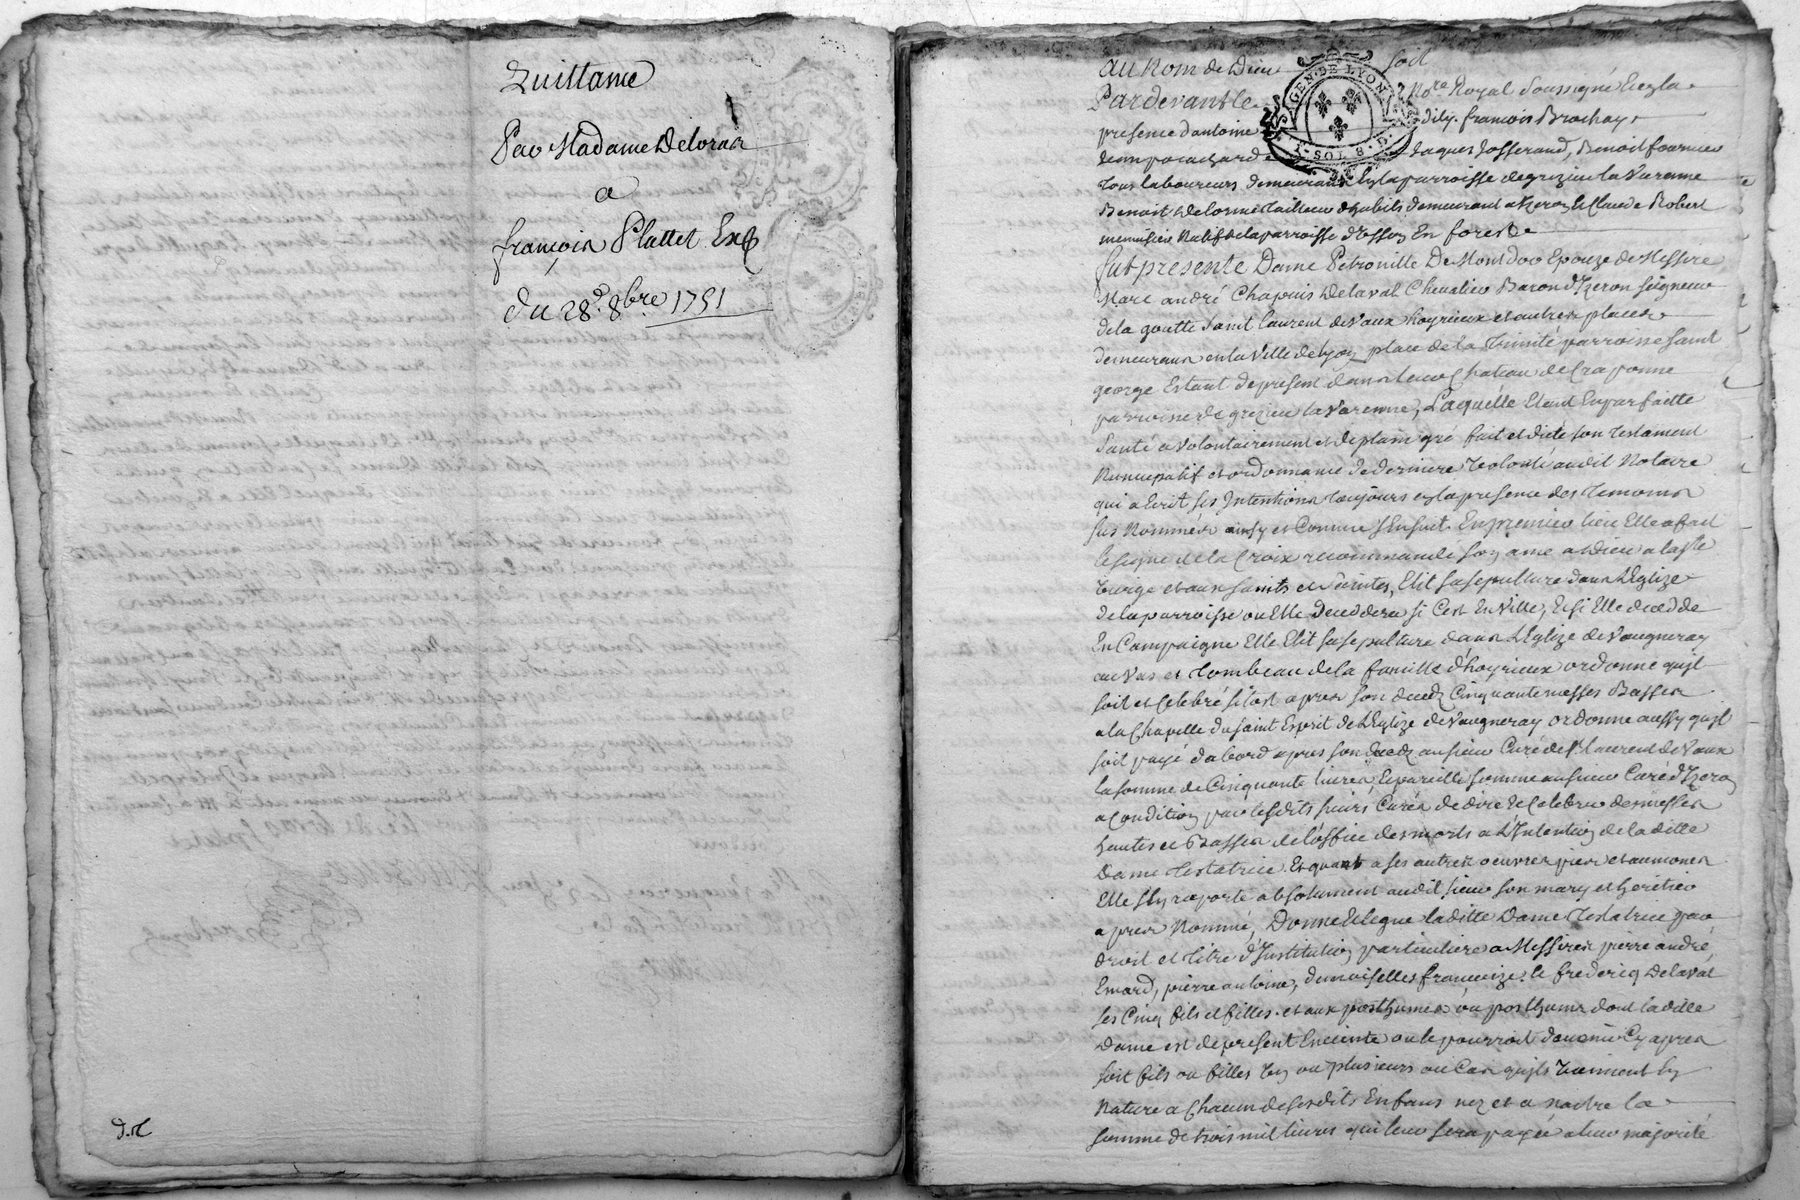 Quittance
Par Madame Deloras
a
françois Plattet Exp
du 28e 8bre 1751
d.R
au Nom de Dieu soit
GEN. DE LYON
SOL 8 D.
Pardevant le Nore Royal soussigné En la
presence d'antoine dit françois Brochay
Jaques Josserand, Benoit fournier
tous laboureurs demeurant En la parroisse de grezieu la Varenne
Benoit Delorme tailleur d'habits demeurant a Yzeron et Claude Robert
menuisier Natif de la parroisse d'Essey En forest
fut presente Dame Petronille De Montdor Epouze de Messire
Marc andré Chapuis Delaval Chevalier Baron d'Yzeron seigneur
de la goutte saint laurent de Vaux hoyrieux et autres places
demeurans en la Ville de lyon place de la trinité parroisse saint
george Estant de present dans leur Chateau de Craponne
parroisse de grezieu la Varenne, Laquelle Etant En parfaitte
santé a volontairement et de plain gré fait et dicté son testament
Nuncupatif et ordonnance de derniere volonté audit Notaire
qui a Ecrit ses Intentions toujours en la presence des temoins
sus Nommés ainsy et Comme s'Ensuit. En premier lieu Elle a fait
le signe de la Croix recommandé son ame a Dieu a la ste
Vierge et aux saints et saintes, Elit sa sepulture dans L'Eglize
de la parroisse ou Elle decedera si C'est En Ville, Et si Elle decedde
En Campaigne Elle Elit sa sepulture dans L'Eglize de Vaugneray
au Vas et tombeau de la famille d'hoyrieux ordonne qu'jl
soit et Celebré sitost apres son decedz Cinquante messes Basses
a la Chapelle du saint Esprit de L'Eglize de Vaugneray ordonne aussy qu'jl
soit payé d'abord apres son decedz au sieur Curé de st laurent de Vaux
la somme de Cinquante livres, Et pareille somme au sieur Curé d'Yzeron
a Condition par lesdits sieurs Curés de dire et Celebrer des messes
hautes et Basses de l'office des morts a L'Intention de la ditte
Dame testatrice. Et quant a ses autres oeuvres pies et aumones
Elle s'En raporte absolument audit sieur son mary et heritier
apres Nommé, Donne et legue laditte Dame testatrice par
droit et titre d'Institution particuliere a Messires pierre andré
Emard, pierre antoine, demoiselles françoize Et frederiq Delaval
ses Cinq fils et filles et aux posthumes ou posthume dont la ditte
Dame est de present Enceinte ou le pourroit devenir Cy apres
soit fils ou filles un ou plusieurs au Cas qu'jls Viennent En
Nature a Chacun de sesdits Enfans nez et a naitre la
somme de trois mil livres qui leur sera payée a leur majorité